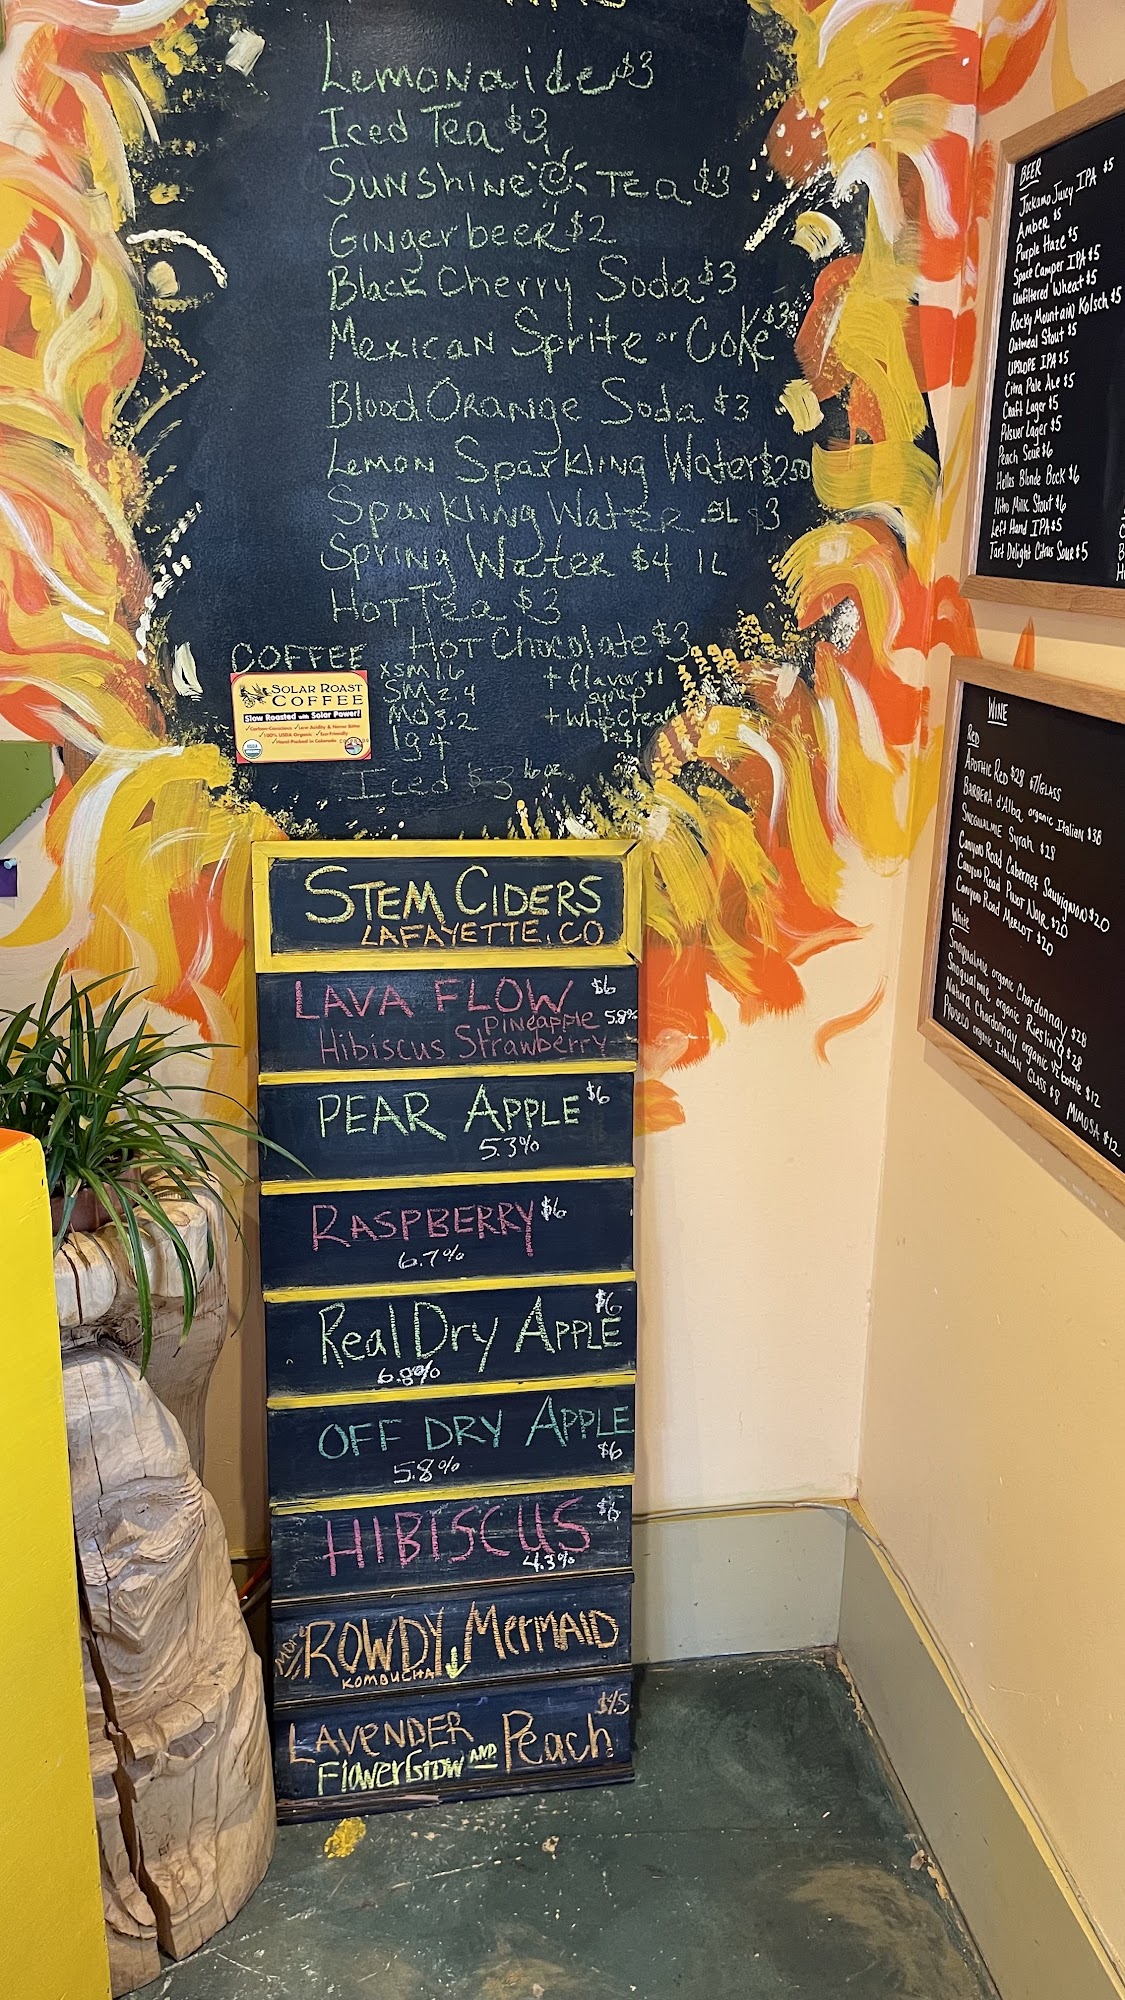 Lemonaide $3
Iced Tea $3
Sunshine Tea $3
Gingerbeer $2
Black Cherry Soda $3
Mexican Sprite or Coke $3
Blood Orange Soda $3
Lemon Sparkling Water $2.50
Sparkling Water $3
Spring Water $4 1L
Hot Tea $3
Hot Chocolate $3
+ flavor $1
syrup
+ whip cream
COFFEE
xsm 1.6
SM 2.4
MD 3.2
lg 4
Iced $3 16 oz
SOLAR ROAST
COFFEE
Slow Roasted with Solar Power!
100% USDA Organic
Hand Packed in Colorado
STEM CIDERS
LAFAYETTE, CO
LAVA FLOW $6
Pineapple 5.8%
Hibiscus Strawberry
PEAR APPLE $6
5.3%
RASPBERRY $6
6.7%
Real Dry APPLE $6
6.8%
OFF DRY APPLE
$6
5.8%
HIBISCUS $6
4.3%
ROWDY Mermaid
KOMBUCHA
LAVENDER AND Peach
Flower Grow
BEER
Jockamo Juicy IPA $5
Amber $5
Purple Haze $5
Space Camper IPA $5
Unfiltered Wheat $5
Rocky Mountain Kolsch $5
Oatmeal Stout $5
UPSLOPE IPA $5
Citra Pale Ale $5
Craft Lager $5
Pilsner Lager $5
Peach Sour $6
Helles Blonde Bock $6
Nitro Milk Stout $6
Left Hand IPA $5
Tart Delight Citrus Sour $5
WINE
Red
APOTHIC RED $28 $7/GLASS
BARBERA d'Alba, organic Italian $38
SNOQUALMIE Syrah $28
Canyon Road Cabernet Sauvignon $20
Canyon Road Pinot Noir $20
Canyon Road MERLOT $20
White
Snoqualmie organic Chardonnay $28
Snoqualmie organic RiesLing $28
Natura Chardonnay organic 1/2 bottle $12
PROSECCO organic ITALIAN GLASS $8 MIMOSA $12